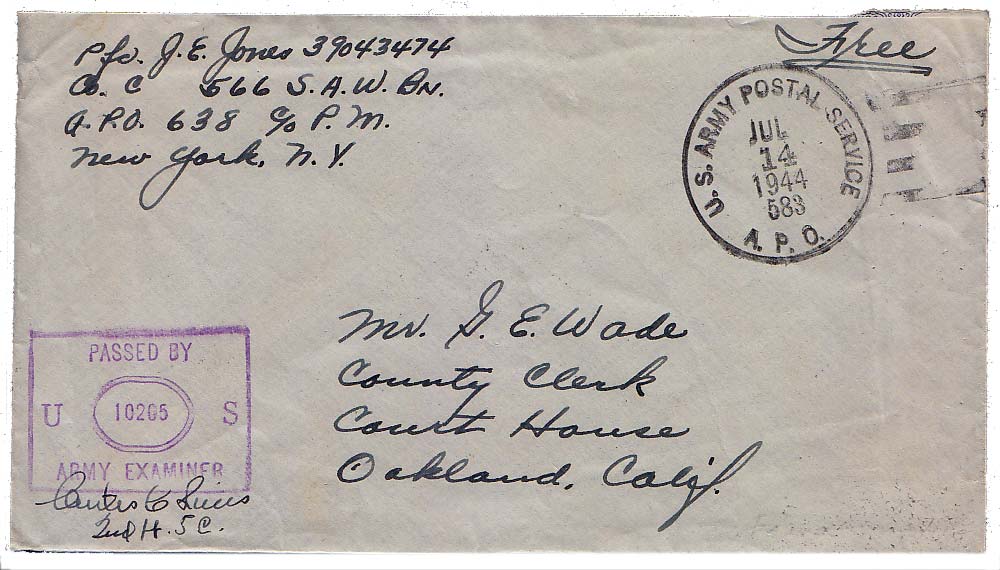 Pfc. J. E. Jones 39043474
Co. C 566 S. A. W. Bn.
A. P. O. 638 c/o P. M.
New York, N. Y.
Free
U. S. ARMY POSTAL SERVICE
JUL
14
1944
583
A. P. O.
Mr. G. E. Wade
County Clerk
Court House
Oakland, Calif.
PASSED BY
U 10205 S
ARMY EXAMINER
2nd Lt. S C.